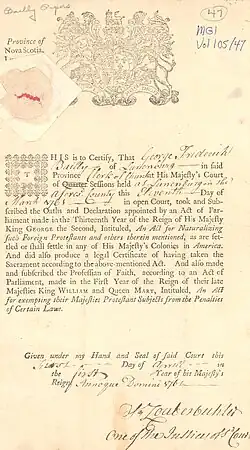 Bailly
47
Province of
Nova Scotia.
MG1
Vol 105/47
THIS is to Certify, That George Frederick
Bailly of Lunenburg in said
Province Clerk of His Majesty's Court
of Quarter Sessions held at Lunenburg in the
County this Eleventh Day of
March 1761 in open Court, took and Sub-
scribed the Oaths and Declaration appointed by an Act of Par-
liament made in the Thirteenth Year of the Reign of His Majesty
King GEORGE the Second, Intituled, An Act for Naturalizing
such Foreign Protestants and others therein mentioned, as are set-
tled or shall settle in any of His Majesty's Colonies in America.
And did also produce a legal Certificate of having taken the
Sacrament according to the above-mentioned Act. And also made
and subscribed the Profession of Faith, according to an Act of
Parliament, made in the First Year of the Reign of their late
Majesties King WILLIAM and Queen MARY, Intituled, An Act
for exempting their Majesties Protestant Subjects from the Penalties
of Certain Laws.
Given under my Hand and Seal of said Court this
Day of
in the first Year of his Majesty's
Reign Annoque Domini 176
One of the Justices of s'd Court